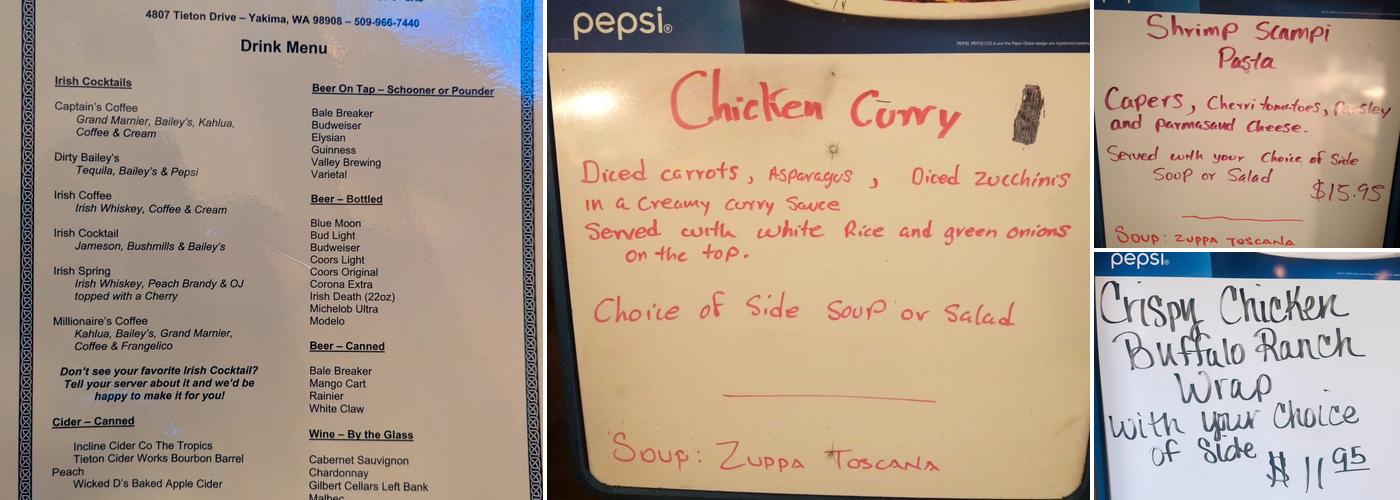 4807 Tieton Drive – Yakima, WA 98908 – 509-966-7440
Drink Menu
Irish Cocktails
Captain's Coffee
Grand Marnier, Bailey's, Kahlua,
Coffee & Cream
Dirty Bailey's
Tequila, Bailey's & Pepsi
Irish Coffee
Irish Whiskey, Coffee & Cream
Irish Cocktail
Jameson, Bushmills & Bailey's
Irish Spring
Irish Whiskey, Peach Brandy & OJ
topped with a Cherry
Millionaire's Coffee
Kahlua, Bailey's, Grand Marnier,
Coffee & Frangelico
Don't see your favorite Irish Cocktail?
Tell your server about it and we'd be
happy to make it for you!
Cider – Canned
Incline Cider Co The Tropics
Tieton Cider Works Bourbon Barrel
Peach
Wicked D's Baked Apple Cider
Beer On Tap – Schooner or Pounder
Bale Breaker
Budweiser
Elysian
Guinness
Valley Brewing
Varietal
Beer – Bottled
Blue Moon
Bud Light
Budweiser
Coors Light
Coors Original
Corona Extra
Irish Death (22oz)
Michelob Ultra
Modelo
Beer – Canned
Bale Breaker
Mango Cart
Rainier
White Claw
Wine – By the Glass
Cabernet Sauvignon
Chardonnay
Gilbert Cellars Left Bank
Malbec
pepsi
Chicken Curry
Diced carrots, Asparagus, Diced zucchinis
in a Creamy curry Sauce
Served with white Rice and green onions
on the top.
Choice of Side Soup or Salad
Soup: Zuppa Toscana
Shrimp Scampi
Pasta
Capers, Cherri tometoes, Parsley
and parmasand cheese.
Served with your Choice of Side
Soup or Salad
$15.95
Soup: Zuppa Toscana
pepsi
Crispy Chicken
Buffalo Ranch
Wrap
with your Choice
of Side $11.95